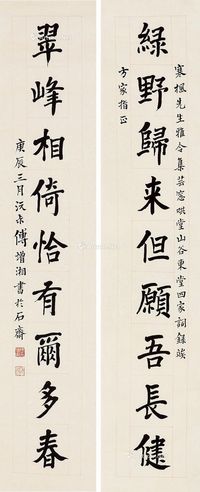 綠野歸来但願吾長健
寒楓先生雅令集芸窓晄堂山谷東堂四家詞錄竢
方家指正
翠峰相倚恰有爾多春
庚辰三月沅尗傅增湘書於石齋